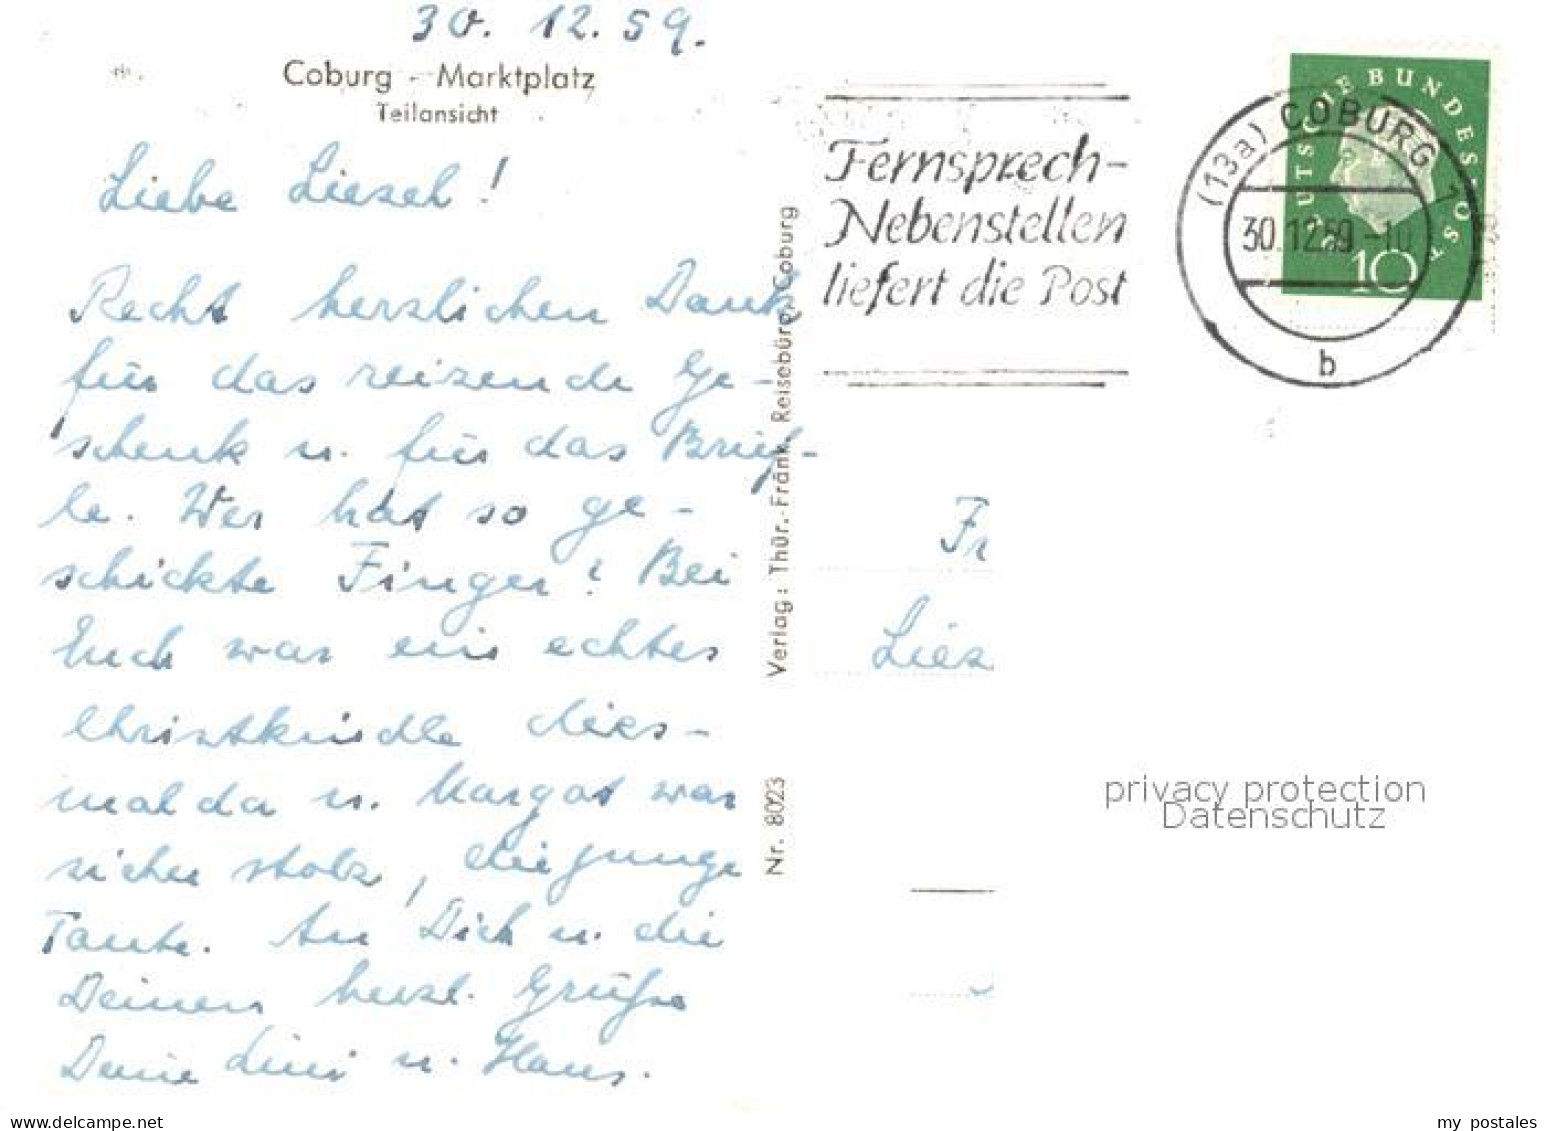 30. 12. 59.
Coburg - Marktplatz
Teilansicht
Liebe Liesel!
Recht herzlichen Dank
für das reizende Ge-
schenk u. für das Brief-
le. Wer hat so ge-
schickte Finger? Bei
Euch war ein echtes
Christkindle dies-
mal da u. Margot war
sicher stolz, die junge
Tante. An Dich u. die
Deinen herzl. Grüße
Deine Lini u. Hans.
Verlag: Thür.-Fränk. Reisebüro, Coburg
Nr. 8023
Fernsprech-
Nebenstellen
liefert die Post
(13a) COBURG 1
30.12.59
b
DEUTSCHE BUNDESPOST
10
Fr
Lies
privacy protection
Datenschutz
delcampe.net
my_postales